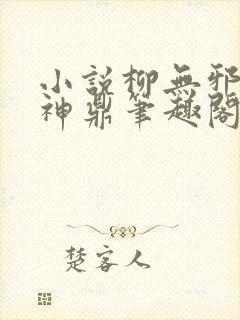 小說柳無邪
神鼎筆趣閣
楚客人